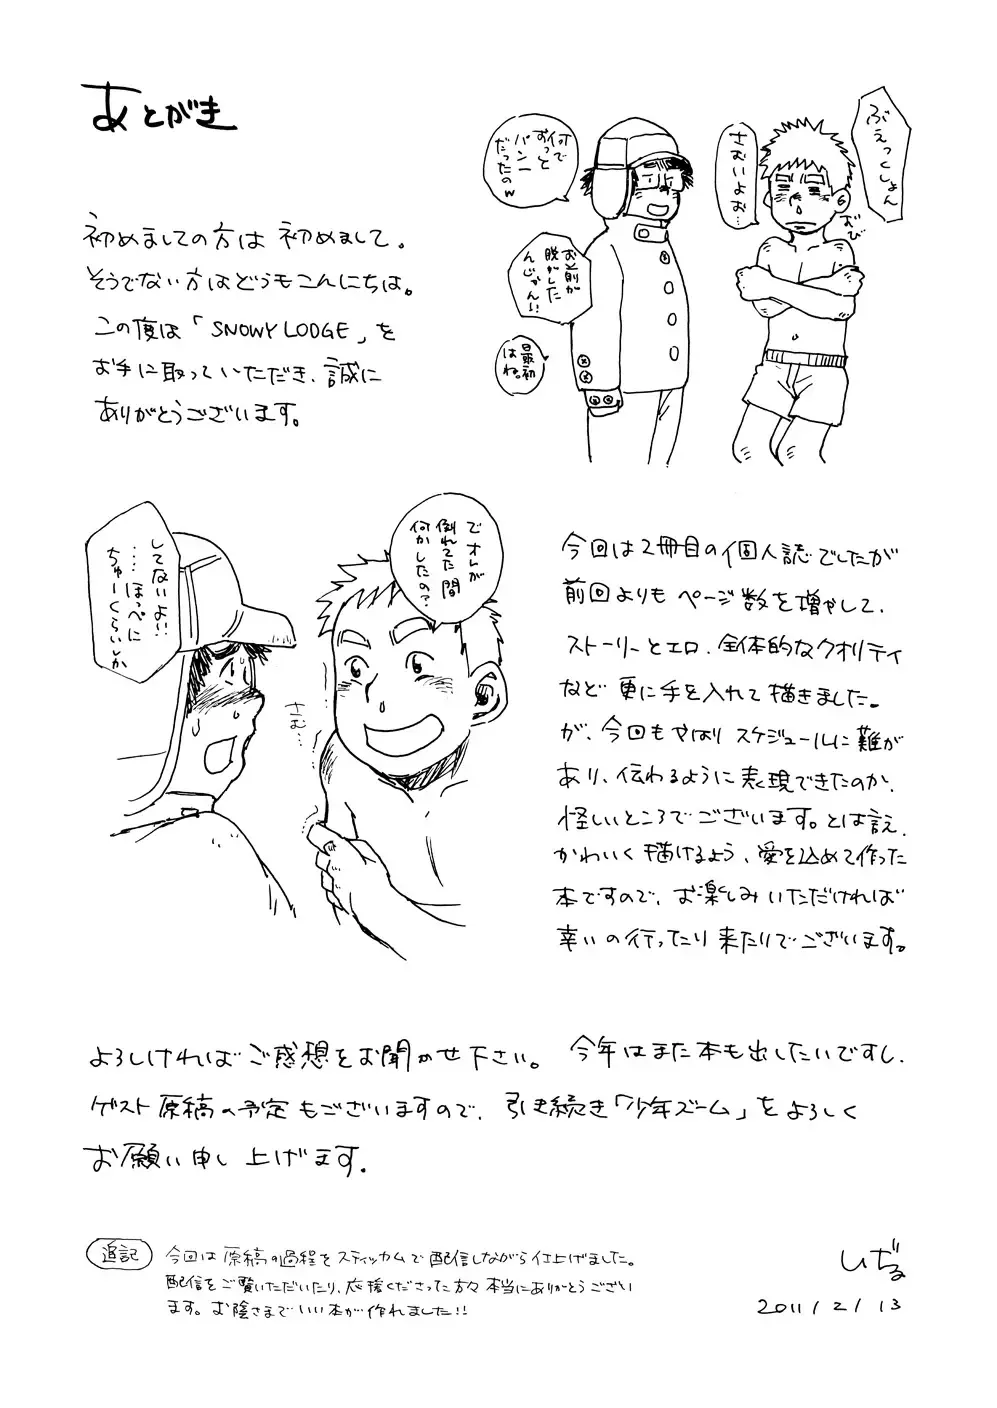 あとがき
初めましての方は初めまして。
そうでない方はどうもこんにちは。
この度は「SNOWY LODGE」を
お手に取っていただき、誠に
ありがとうございます。
ぶえっくしょん
さむいよお…
何で
ずっと
パンツ一
だったのw
お前が
脱がした
んじゃん!!
最初
はね。
でオレが
倒れてた間
何かしたの?
してないよ!!
…ほっぺに
ちゅーくらいしか
さむ…
今回は2冊目の個人誌でしたが
前回よりもページ数を増やして、
ストーリーとエロ、全体的なクオリティ
など更に手を入れて描きました。
が、今回もやはりスケジュールに難が
あり、伝わるように表現できたのか、
怪しいところでございます。とは言え、
かわいく描けるよう、愛を込めて作った
本ですので、お楽しみいただければ
幸いの行ったり来たりでございます。
よろしければご感想をお聞かせ下さい。今年はまた本も出したいですし、
ゲスト原稿の予定もございますので、引き続き「少年ズーム」をよろしく
お願い申し上げます。
追記 今回は原稿の過程をスティッカムで配信しながら仕上げました。
配信をご覧いただいたり、応援くださった方々本当にありがとうござい
ます。お陰さまでいい本が作れました!!
いぢる
2011/2/13